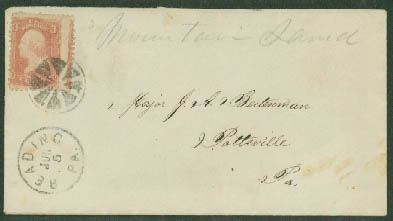 Mountain Land
Major J. A.
Pottsville
Pa.
READING
PA.
JUL
5
3